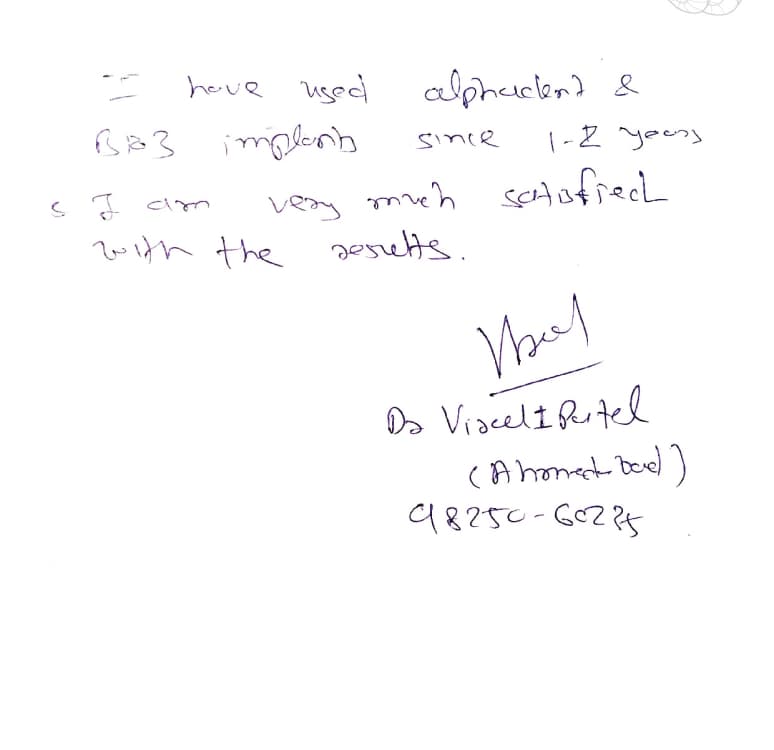 I have used alphadent &
implants since 1-2 years
& I am very much satisfied
with the results.
Dr Viral I Patel
(Ahmedabad)
98250-